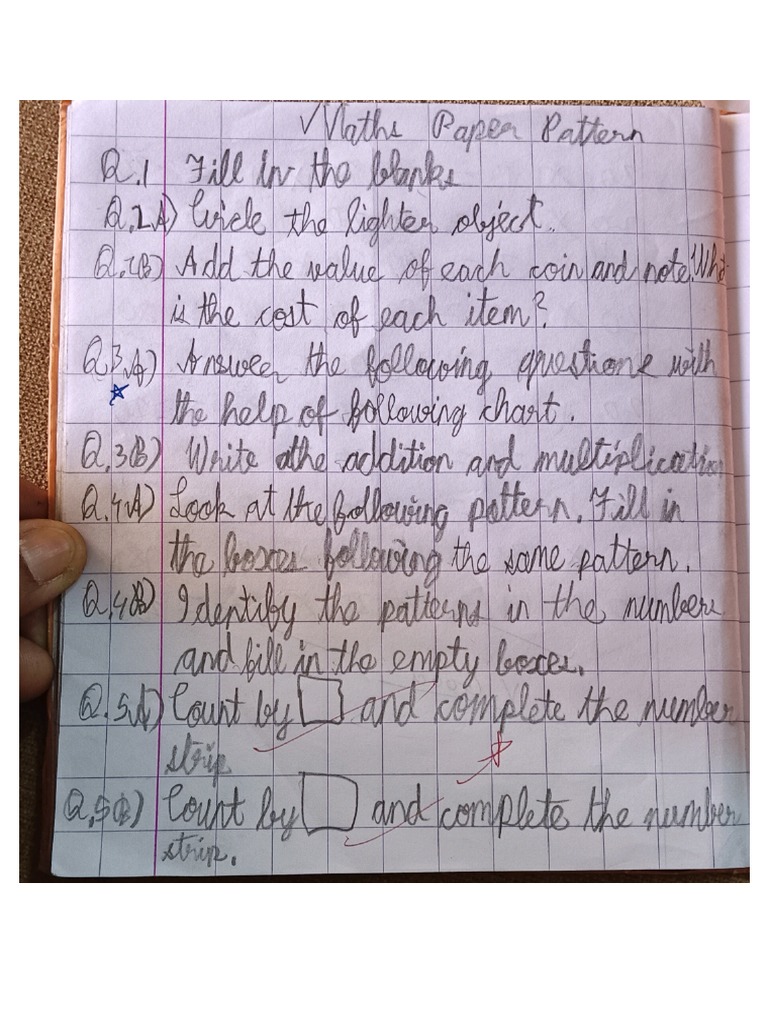 Maths Paper Pattern
Q.1 Fill in the blanks
Q.2A) Circle the lighter object.
Q.2(B) Add the value of each coin and note. What
is the cost of each item?
Q.3.A) Answer the following questions with
the help of following chart.
Q.3(B) Write the addition and multiplication
Q.4.A) Look at the following pattern. Fill in
the boxes following the same pattern.
Q.4(B) Identify the patterns in the numbers
and fill in the empty boxes.
Q.5.A) Count by and complete the number
strip
Q.5(B) Count by and complete the number
strip.